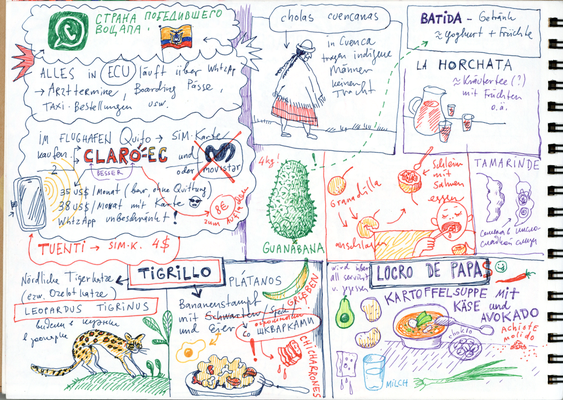 СТРАНА ПОБЕДИВШЕГО
ВОЦАПА.
ALLES in ECU läuft über WhatsApp
→ Arzttermine, Boarding Pässe,
TAXI-Bestellungen usw.
IM FLUGHAFEN Quito → SIM-Karte
kaufen:
CLARO-EC und
BESSER
movistar
35 US$/Monat (bar, ohne Quittung
38 US$/Monat mit Karte
WhatsApp unbeschränkt!
8€
TUENTI → SIM-K. 4$
cholas cuencanas
in Cuenca
tragen indigene
Männer
keinerlei
Tracht
BATIDA - Getränk
≈ Yoghurt + Früchte
LA HORCHATA
≈ Kräutertee (?)
mit Früchten
o.ä.
4kg!
GUANÁBANA
Granadilla
Schleim
mit
Samen
essen
anschlagen
TAMARINDE
TIGRILLO
Nördliche Tigerkatze
(bzw. Ozelotkatze)
LEOPARDUS TIGRINUS
PLÁTANOS
GRABEN
Bananenstampf
mit Schwarten/Speck
und Eier
со ШКВАРКАМИ
CHICHARRONES
LOCRO DE PAPAS
wird über
all serviert
KARTOFFELSUPPE MIT
KÄSE und
AVOKADO
Achiote
molido
MILCH